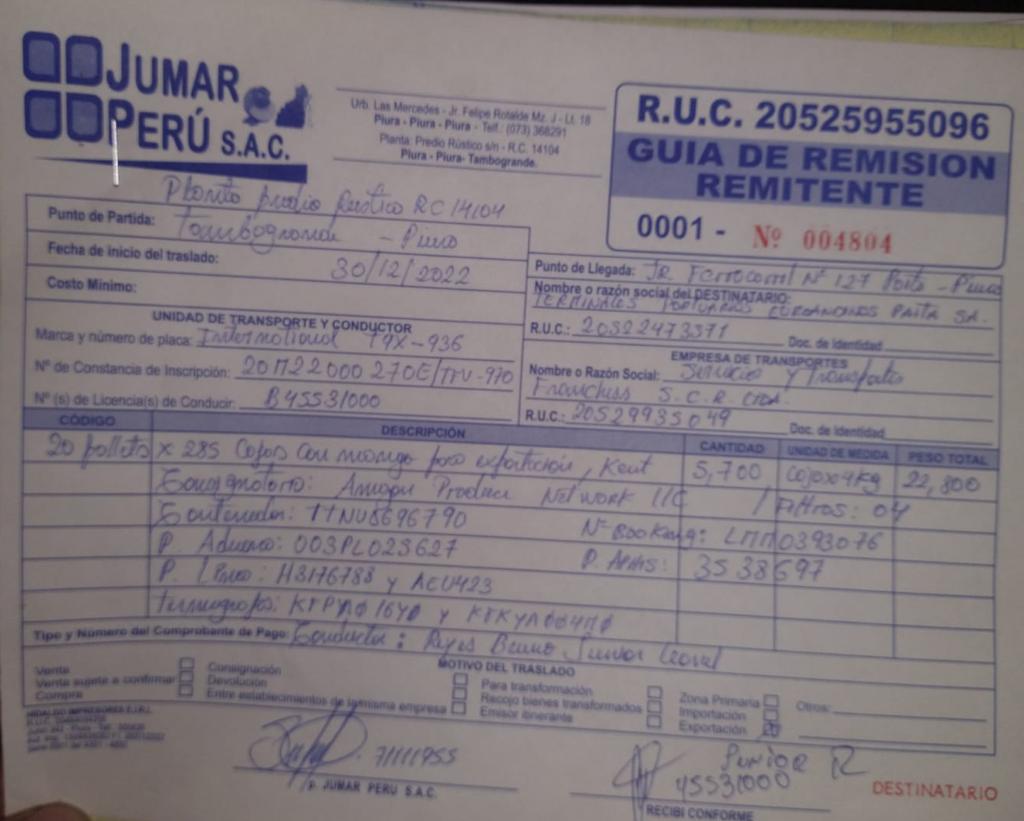 JUMAR
PERÚ S.A.C.
Urb. Las Mercedes - Jr. Felipe Rotalde Mz. J - Lt. 18
Piura - Piura - Piura - Telf.: (073) 368291
Planta: Predio Rústico s/n - R.C. 14104
Piura - Piura- Tambogrande.
R.U.C. 20525955096
GUIA DE REMISION
REMITENTE
0001 - Nº 004804
Planta predio Rustico RC 14104
Punto de Partida: Tambogrande - Piura
Fecha de inicio del traslado: 30/12/2022
Costo Mínimo:
Punto de Llegada: JR Ferrocarril Nº 127 Paita - Piura
Nombre o razón social del DESTINATARIO:
TERMINALES PORTUARIOS EUROANDINOS PAITA SA.
R.U.C.: 20522473571 Doc. de Identidad
UNIDAD DE TRANSPORTE Y CONDUCTOR
Marca y número de placa: International T9X-936
Nº de Constancia de Inscripción: 20M22000270E/TFV-970
Nº (s) de Licencia(s) de Conducir: B45531000
EMPRESA DE TRANSPORTES
Nombre o Razón Social: Servicio y Transportes
S.C.R. LTDA.
R.U.C.: 20529935049 Doc. de Identidad
CÓDIGO DESCRIPCIÓN CANTIDAD UNIDAD DE MEDIDA PESO TOTAL
20 pallets x 285 Cajas con mango para exportación, Kent 5,700 cajax4kg 22,800
Consignatario: Amazon Produce Network LLC / Filtros: 04
Contenedor: TTNU8696790 Nº Booking: LMM0393076
P. Aduana: 003PL023627 P. Aphis: 3538697
P. Linea: H3176788 y AEU423
termografos: y
Tipo y Número del Comprobante de Pago: Conductor: Reyes Bruno Junior
MOTIVO DEL TRASLADO
Venta
Venta sujeta a confirmar
Compra
Consignación
Devolución
Entre establecimientos de la misma empresa
Para transformación
Recojo bienes transformados
Emisor itinerante
Zona Primaria
Importación
Exportación
Otros:
HIDALGO IMPRESORES E.I.R.L.
71111955
p. JUMAR PERU S.A.C.
Junior R
45531000
RECIBI CONFORME
DESTINATARIO